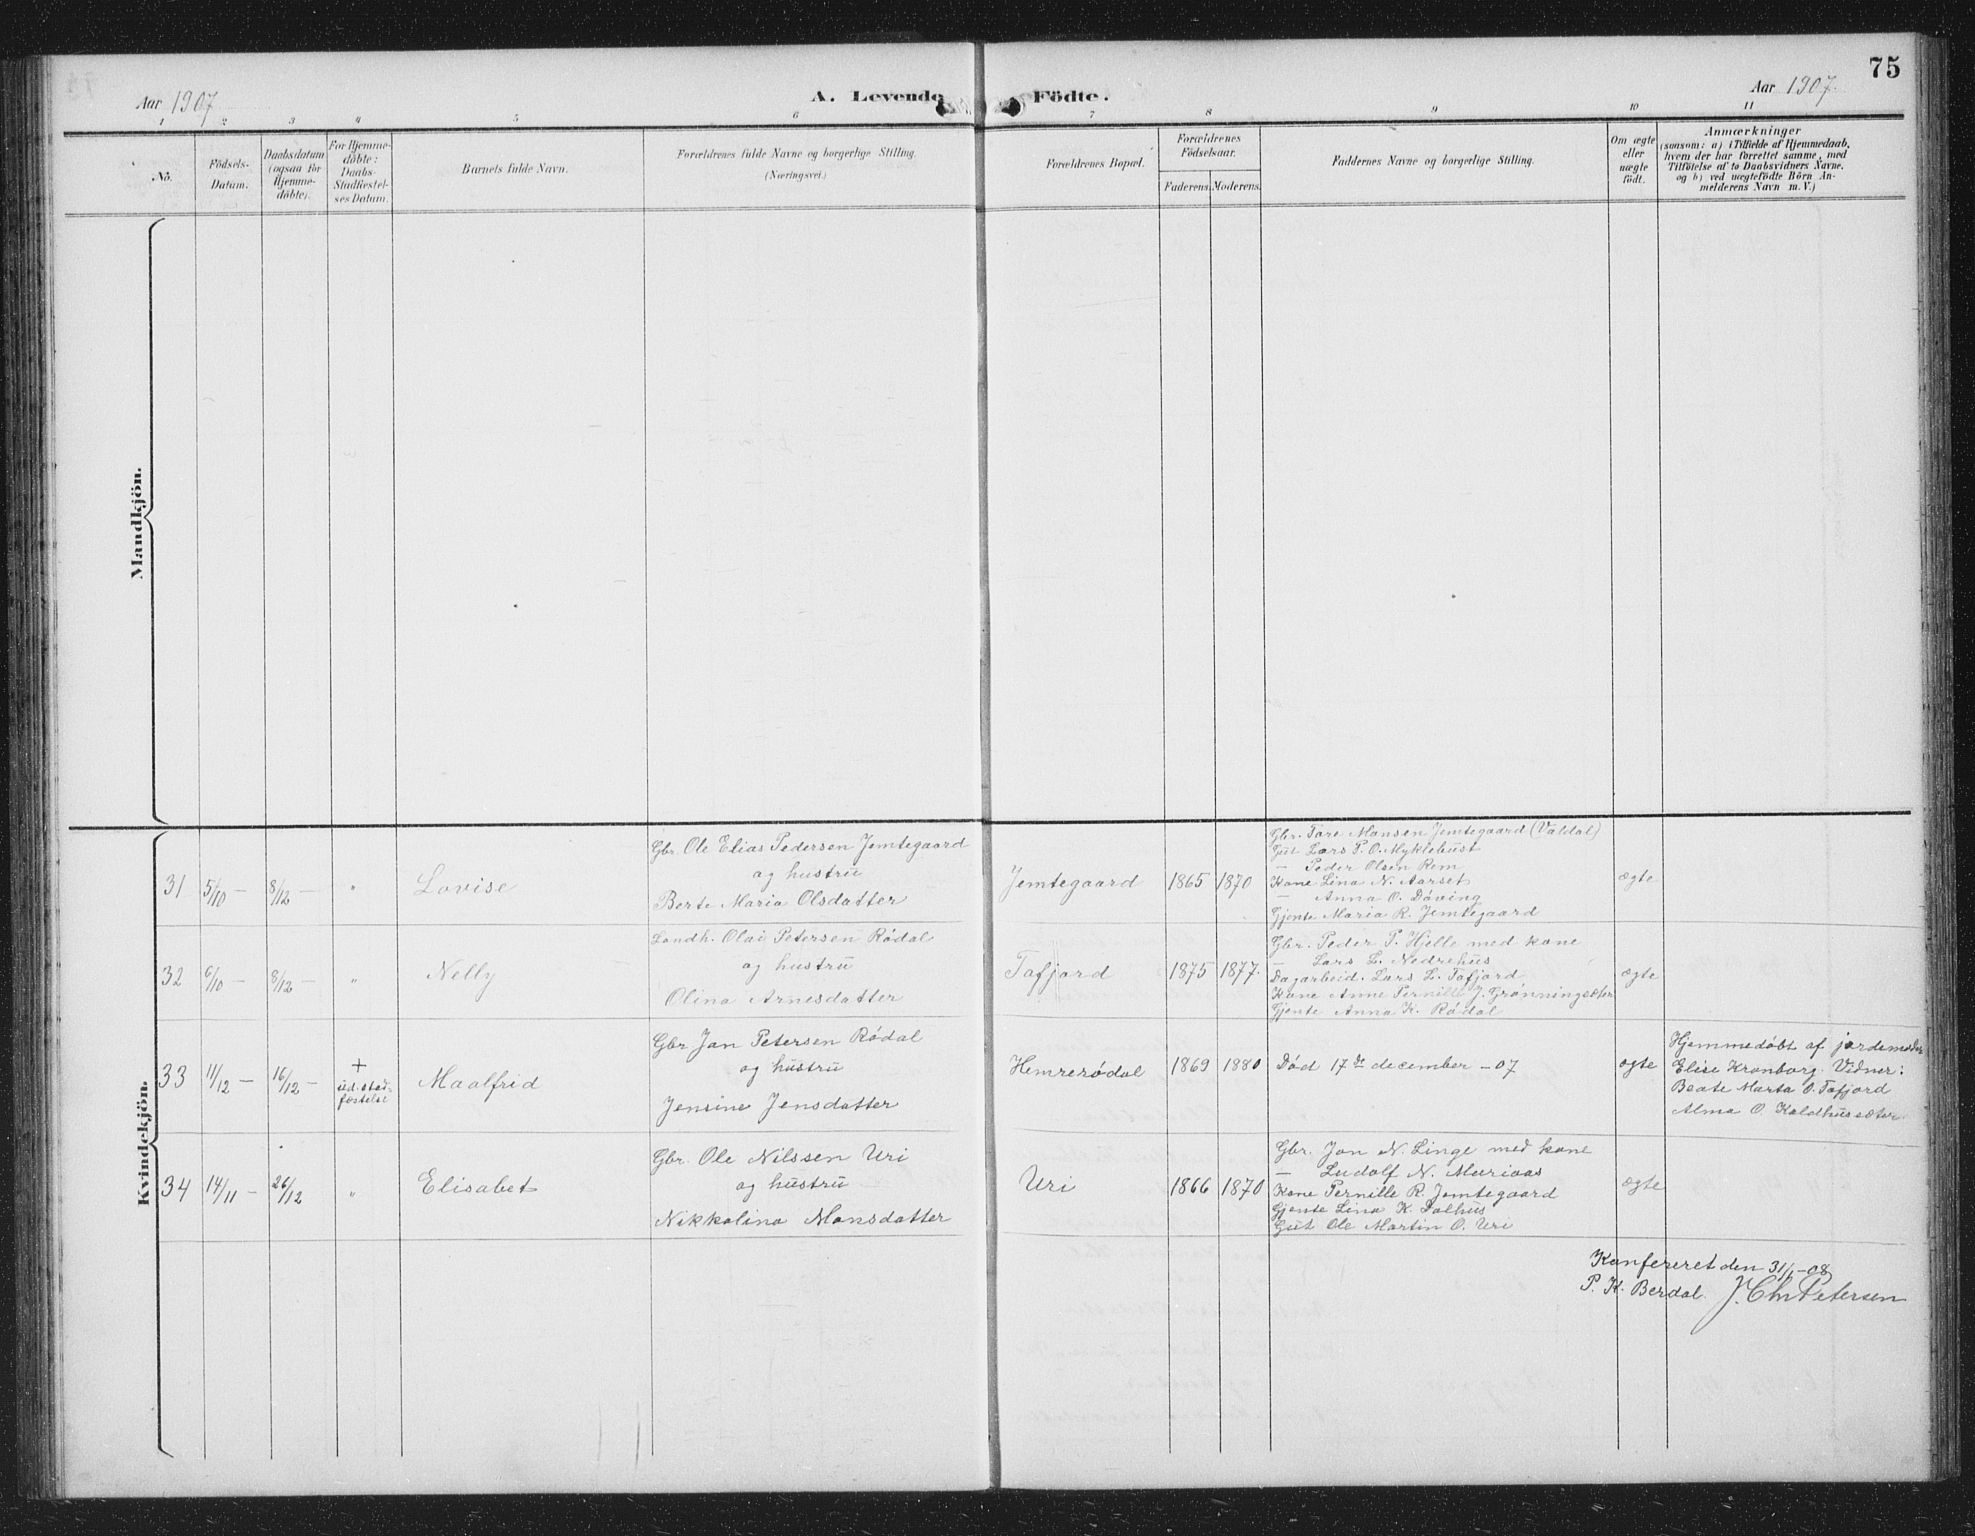 75
Aar 1907
A. Levende Födte.
Aar 1907.
1 2 3 4 5 6 7 8 9 10 11
No.
Födsels-
Datum.
Daabsdatum
(ogsaa for
Hjemme-
döbte).
For Hjemme-
döbte:
Daabs-
Stadfæstel-
ses Datum.
Barnets fulde Navn.
Forældrenes fulde Navne og borgerlige Stilling.
(Næringsvei.)
Forældrenes Bopæl.
Forældrenes
Födselsaar.
Faderens. Moderens.
Faddernes Navne og borgerlige Stilling.
Om ægte
eller
uægte
födt.
Anmærkninger
(saasom: a) i Tilfælde af Hjemmedaab,
hvem der har forrettet samme, med
Tilföielse af to Daabsvidners Navne.
og b) ved uægtefödte Börn An-
melderens Navn m. V.)
Mandkjön.
Kvindekjön.
31 5/10 – 8/12 – " Lovise
Gbr. Ole Elias Pedersen Jemtegaard
og hustru
Berte Maria Olsdatter
Jemtegaard 1865 1870
Gbr. Tore Monsen Jemtegaard (Valdal)
Gut Lars P. O. Myklebust
– Peder Olsen Rem
Kone Lina N. Aarset
– Anna O. Döving
Gjente Maria R. Jemtegaard
ægte
32 6/10 – 8/12 – " Nelly
Landh. Olai Petersen Rödal
og hustru
Olina Arnesdatter
Tafjord 1875 1877.
Gbr. Peder P. Hjelle med kone
– Lars L. Nedrehus
Dagarbeid. Lars L. Tafjord
Kone Anne Pernille J. Grönningsæter
Gjente Anna K. Rödal
ægte
33 11/12 – 16/12 – +
ud. stad-
fæstelse
Maalfrid
Gbr Jon Petersen Rödal
og hustru
Jensine Jensdatter
Hemrerødal 1869 1880 Död 17de december – 07 ægte
Hjemmedöbt af jordemoder
Elise Kronborg. Vidner:
Beate Marta O. Tafjord
Alma O. Kaldhusæter
34 14/11 – 26/12 " Elisabet
Gbr. Ole Nilssen Uri
og hustru
Nikkoline Monsdatter
Uri 1866 1870
Gbr. Jon N. Linge med kone
– Ludolf N. Muriaas
Kone Pernille R. Jemtegaard
Gjente Lina K. Dalhus
Gut Ole Martin O. Uri
ægte
Konfereret den 31/1–08
P. K. Berdal. J. Chr Petersen